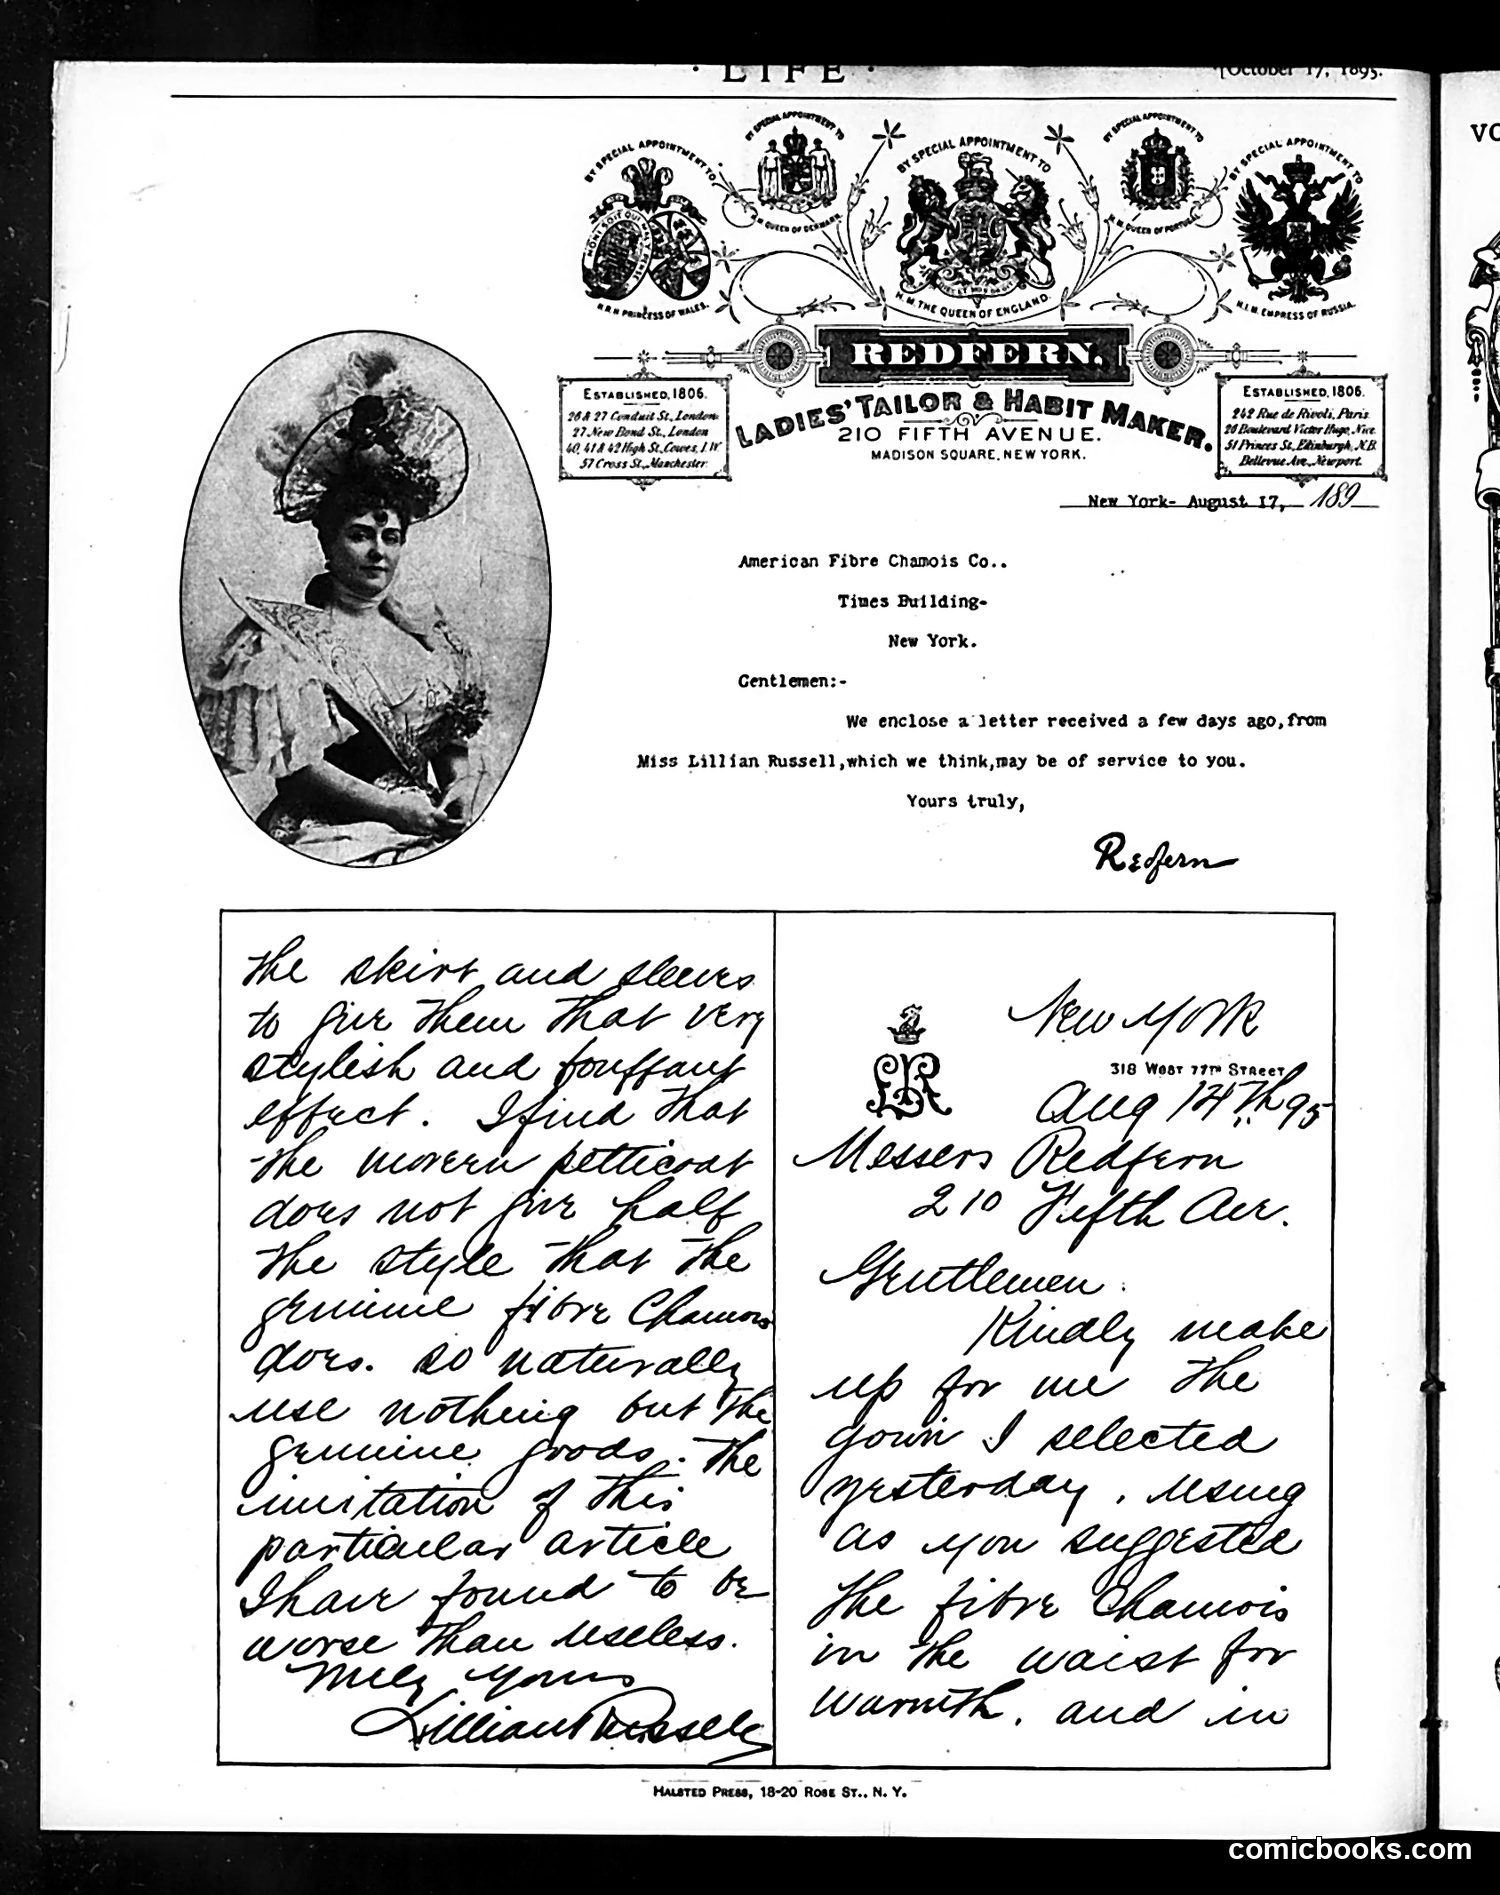 · LIFE ·
[October 17, 1895.
BY SPECIAL APPOINTMENT TO
H.R.H PRINCESS OF WALES.
BY SPECIAL APPOINTMENT TO
H.M QUEEN OF DENMARK.
BY SPECIAL APPOINTMENT TO
H.M. THE QUEEN OF ENGLAND.
BY SPECIAL APPOINTMENT TO
H.M. QUEEN OF PORTUGAL
BY SPECIAL APPOINTMENT TO
H.I.M. EMPRESS OF RUSSIA.
REDFERN.
LADIES' TAILOR & HABIT MAKER.
210 FIFTH AVENUE.
MADISON SQUARE, NEW YORK.
ESTABLISHED, 1806.
26 & 27 Conduit St., London.
27 New Bond St., London
40, 41 & 42 High St., Cowes, I.W.
57 Cross St., Manchester.
ESTABLISHED, 1806.
242 Rue de Rivoli, Paris.
26 Boulevard Victor Hugo, Nice.
51 Princes St., Edinburgh, N.B.
Bellevue Ave., Newport.
New York- August 17, 189
American Fibre Chamois Co..
Times Building-
New York.
Gentlemen:-
We enclose a letter received a few days ago,from
Miss Lillian Russell,which we think,may be of service to you.
Yours truly,
Redfern
New York
318 WEST 77TH STREET
LR
Aug 14th 95
Messers Redfern
210 Fifth Ave.
Gentlemen:
Kindly make
up for me the
gown I selected
yesterday, using
as you suggested
the fibre Chamois
in the waist for
warmth, and in
the skirt and sleeves
to give them that very
stylish and bouffant
effect. I find that
the moreen petticoat
does not give half
the style that the
genuine fibre Chamois
does. so naturally
use nothing but the
genuine goods. The
imitation of this
particular article
I have found to be
worse than useless.
Truly yours
Lillian Russell
HALSTED PRESS, 18-20 ROSE ST., N. Y.
VO
comicbooks.com